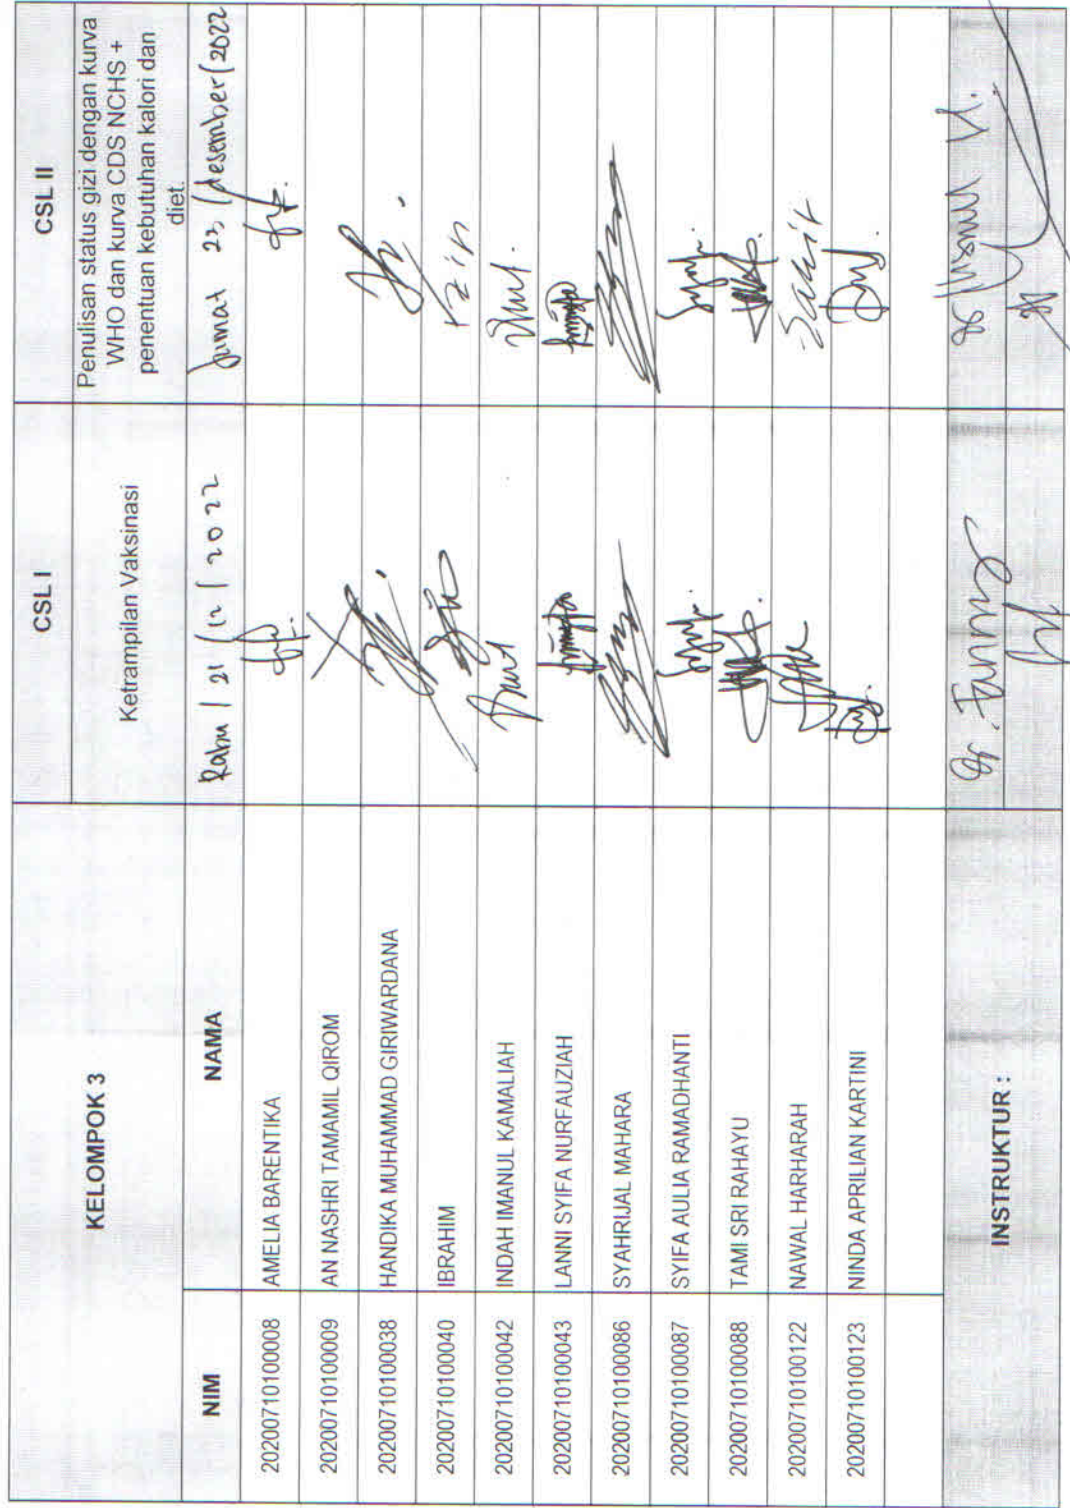 KELOMPOK 3
CSL I
CSL II
Ketrampilan Vaksinasi
Penulisan status gizi dengan kurva
WHO dan kurva CDS NCHS +
penentuan kebutuhan kalori dan
diet.
NIM
NAMA
Rabu / 21 / 12 / 2022
Jumat 23, desember 2022
20200710100008 AMELIA BARENTIKA
20200710100009 AN NASHRI TAMAMIL QIROM
20200710100038 HANDIKA MUHAMMAD GIRIWARDANA
20200710100040 IBRAHIM Izin
20200710100042 INDAH IMANUL KAMALIAH
20200710100043 LANNI SYIFA NURFAUZIAH
20200710100086 SYAHRIJAL MAHARA
20200710100087 SYIFA AULIA RAMADHANTI
20200710100088 TAMI SRI RAHAYU
20200710100122 NAWAL HARHARAH Sakit
20200710100123 NINDA APRILIAN KARTINI
INSTRUKTUR :